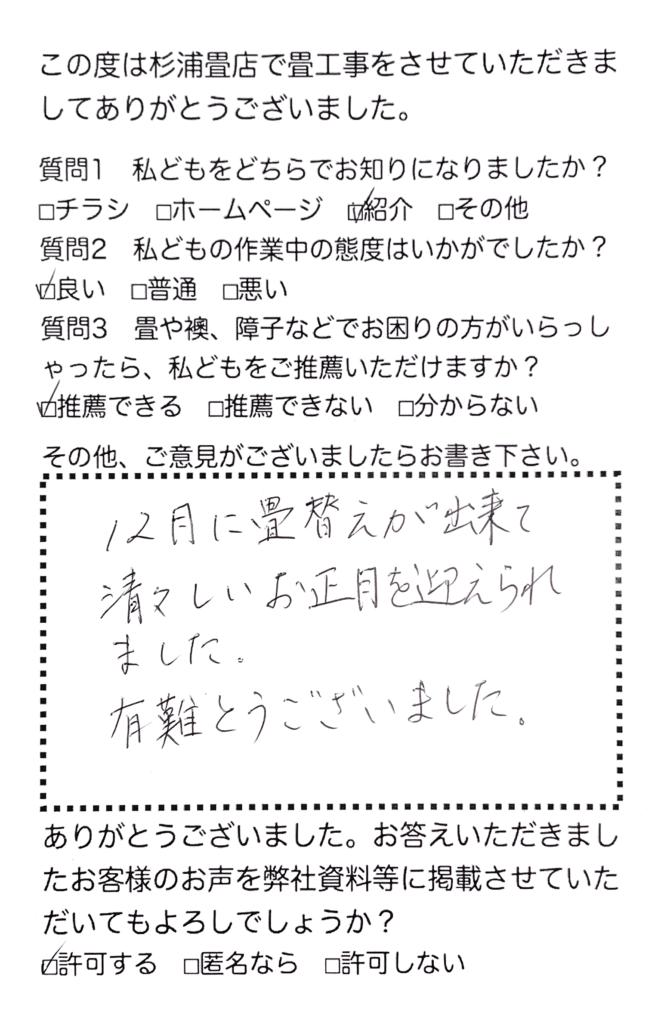 この度は杉浦畳店で畳工事をさせていただきま
してありがとうございました。
質問1 私どもをどちらでお知りになりましたか？
□チラシ □ホームページ ☑紹介 □その他
質問2 私どもの作業中の態度はいかがでしたか？
☑良い □普通 □悪い
質問3 畳や襖、障子などでお困りの方がいらっし
ゃったら、私どもをご推薦いただけますか？
☑推薦できる □推薦できない □分からない
その他、ご意見がございましたらお書き下さい。
12月に畳替えが出来て
清々しいお正月を迎えられ
ました。
有難とうございました。
ありがとうございました。お答えいただきまし
たお客様のお声を弊社資料等に掲載させていた
だいてもよろしでしょうか？
☑許可する □匿名なら □許可しない